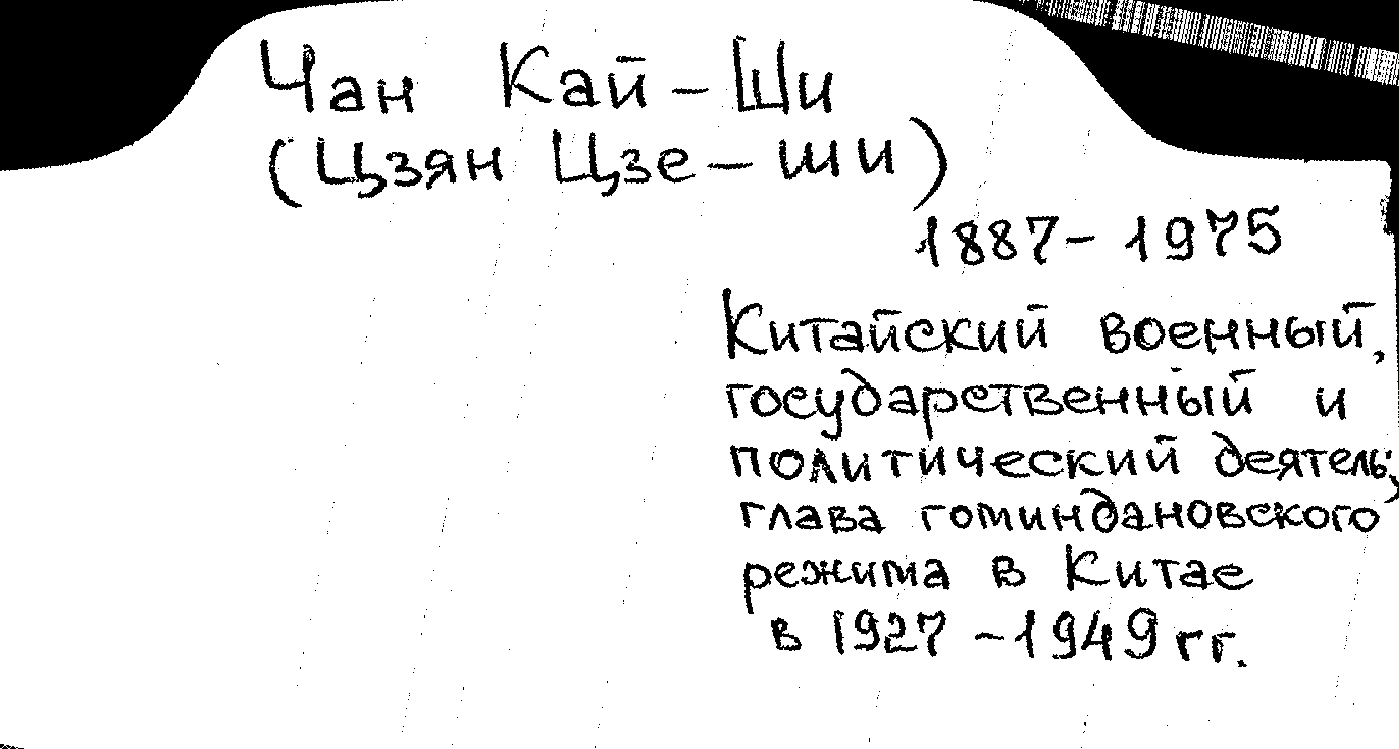 Чан Кай-Ши
(Цзян Цзе-ши)
1887-1975
Китайский военный,
государственный и
политический деятель;
глава гоминдановского
режима в Китае
в 1927-1949 гг.